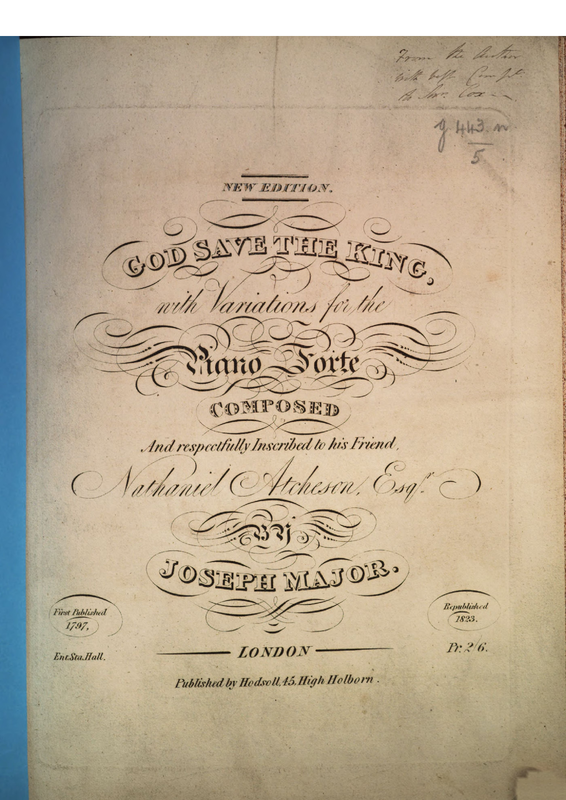 From the Author
with best Compts
to Mrs Cox
g 443. n
5
NEW EDITION.
GOD SAVE THE KING,
with Variations for the
Piano Forte
COMPOSED
And respectfully Inscribed to his Friend,
Nathaniel Atcheson, Esqr.
BY
JOSEPH MAJOR.
First Published
1797,
Republished
1823.
Ent. Sta. Hall.
LONDON
Pr. 2/6.
Published by Hodsoll, 45, High Holborn.